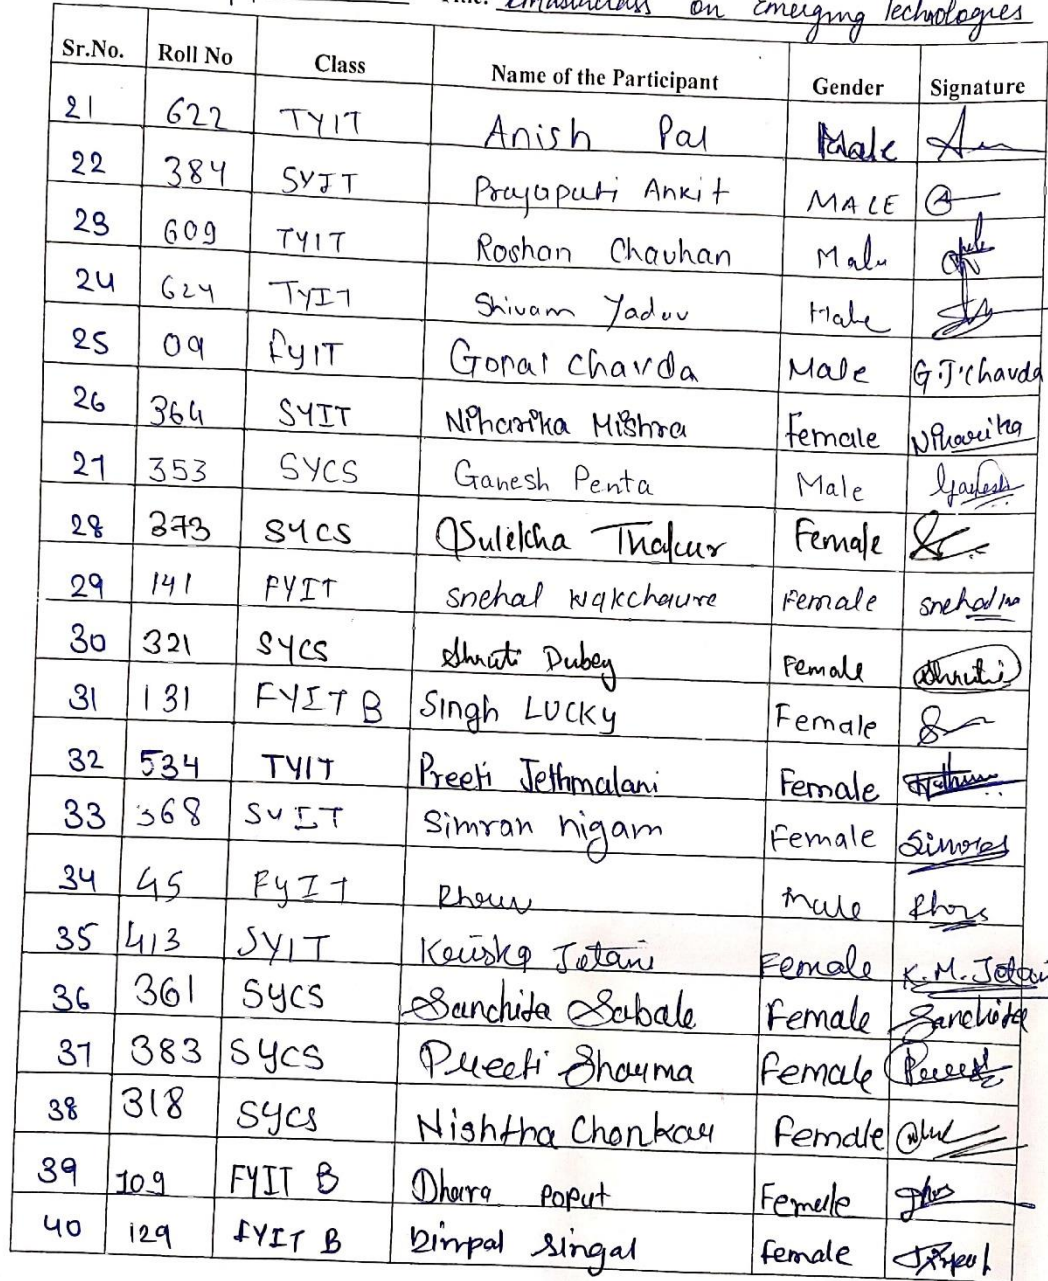 on Emerging Technologies
Sr.No. Roll No Class Name of the Participant Gender Signature
21 622 TYIT Anish Pal Male
22 384 SYIT Prajapati Ankit MALE
23 609 TYIT Roshan Chauhan Male
24 624 TYIT Shivam Yadav Male
25 09 FyIT Gopal Chavda Male G.J.Chavda
26 364 SYIT Niharika Mishra Female Niharika
27 353 SYCS Ganesh Penta Male Ganesh
28 373 SYCS Sulekha Thakur Female
29 141 FYIT snehal wakchaure Female snehal
30 321 SYCS Shruti Dubey Female Shruti
31 131 FYIT B Singh LUCKY Female
32 534 TYIT Preeti Jethmalani Female
33 368 SYIT Simran nigam Female Simran
34 45 FyIT male
35 413 SYIT Jetani Female K.M.Jetani
36 361 SYCS Sanchita Sabale Female Sanchita
37 383 SYCS Preeti Sharma female Preeti
38 318 SYCS Nishtha Chonkar female
39 109 FYIT B Dhara poput Female
40 129 FYIT B Dimpal Singal female Dimpal